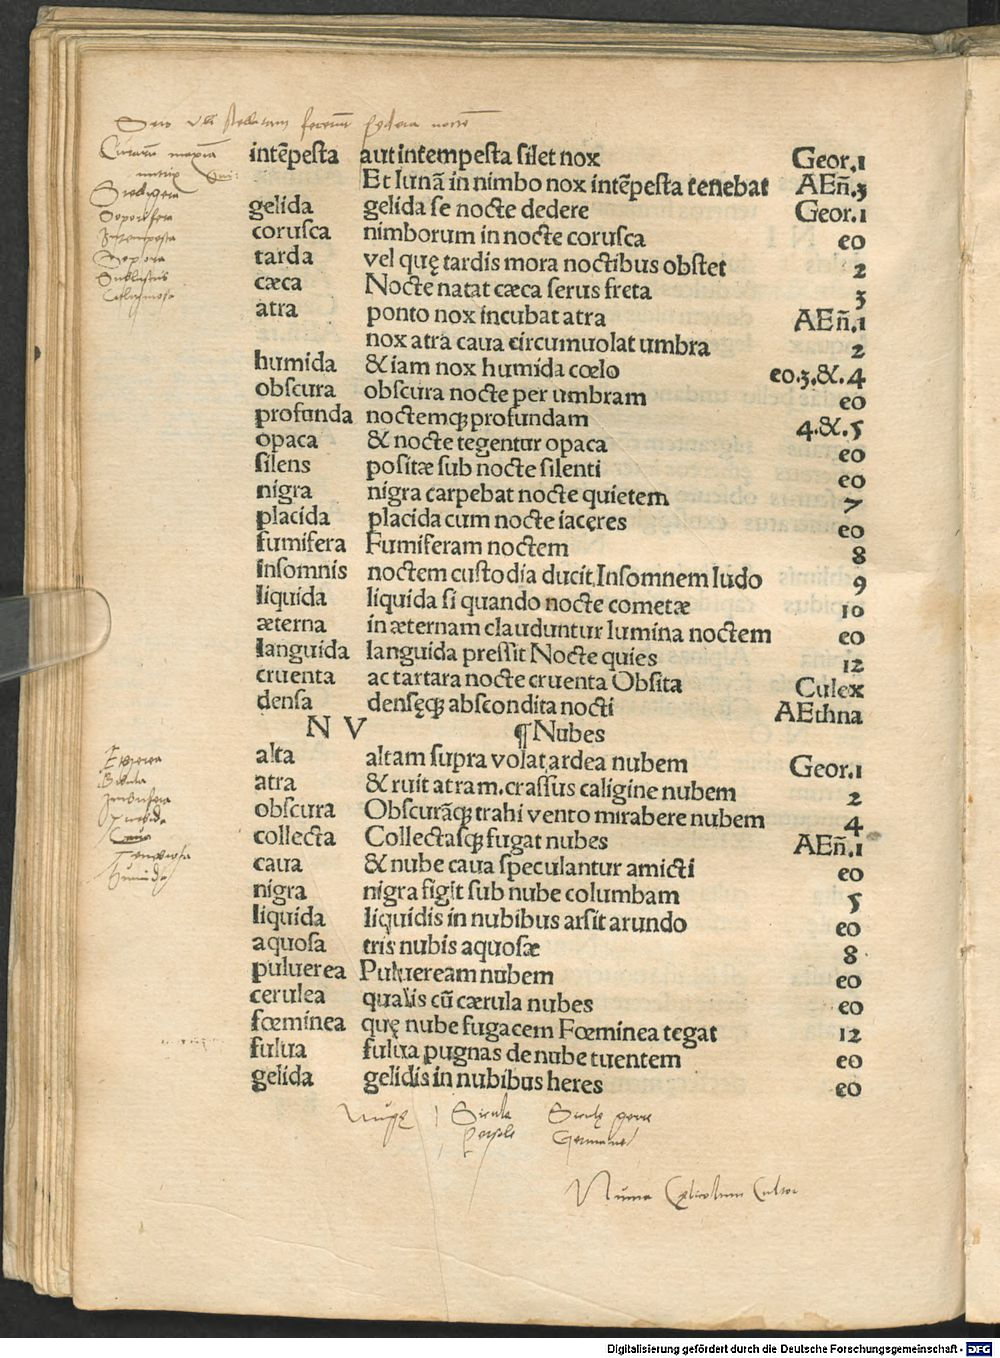 intēpesta aut intempesta silet nox Geor.1
Et lunā in nimbo nox intēpesta tenebat AEñ.3
gelida gelida se nocte dedere Geor.1
corusca nimborum in nocte corusca eo
tarda vel quę tardis mora noctibus obstet 2
cæca Nocte natat cæca serus freta 3
atra ponto nox incubat atra AEñ.1
nox atra caua circumuolat umbra 2
humida & iam nox humida cœlo eo.3.&.4
obscura obscura nocte per umbram eo
profunda noctemq; profundam 4.&.5
opaca & nocte tegentur opaca eo
silens positæ sub nocte silenti eo
nigra nigra carpebat nocte quietem 7
placida placida cum nocte iaceres eo
fumifera Fumiferam noctem 8
Insomnis noctem custodia ducit Insomnem ludo 9
liquida liquida si quando nocte cometæ 10
æterna in æternam clauduntur lumina noctem eo
languida languida pressit Nocte quies 12
cruenta ac tartara nocte cruenta Obsita Culex
densa densęq; abscondita nocti AEthna
N V ¶Nubes
alta altam supra volat ardea nubem Geor.1
atra & ruit atram.crassus caligine nubem 2
obscura Obscurāq; trahi vento mirabere nubem 4
collecta Collectasq; fugat nubes AEñ.1
caua & nube caua speculantur amicti eo
nigra nigra figit sub nube columbam 5
liquida liquidis in nubibus arsit arundo eo
aquosa tris nubis aquosæ 8
puluerea Pulueream nubem eo
cerulea qualis cū cærula nubes eo
fœminea quę nube fugacem Fœminea tegat 12
fulua fulua pugnas de nube tuentem eo
gelida gelidis in nubibus heres eo
Nugę Sicula
Germane
Numa Cultor
Digitalisierung gefördert durch die Deutsche Forschungsgemeinschaft - DFG